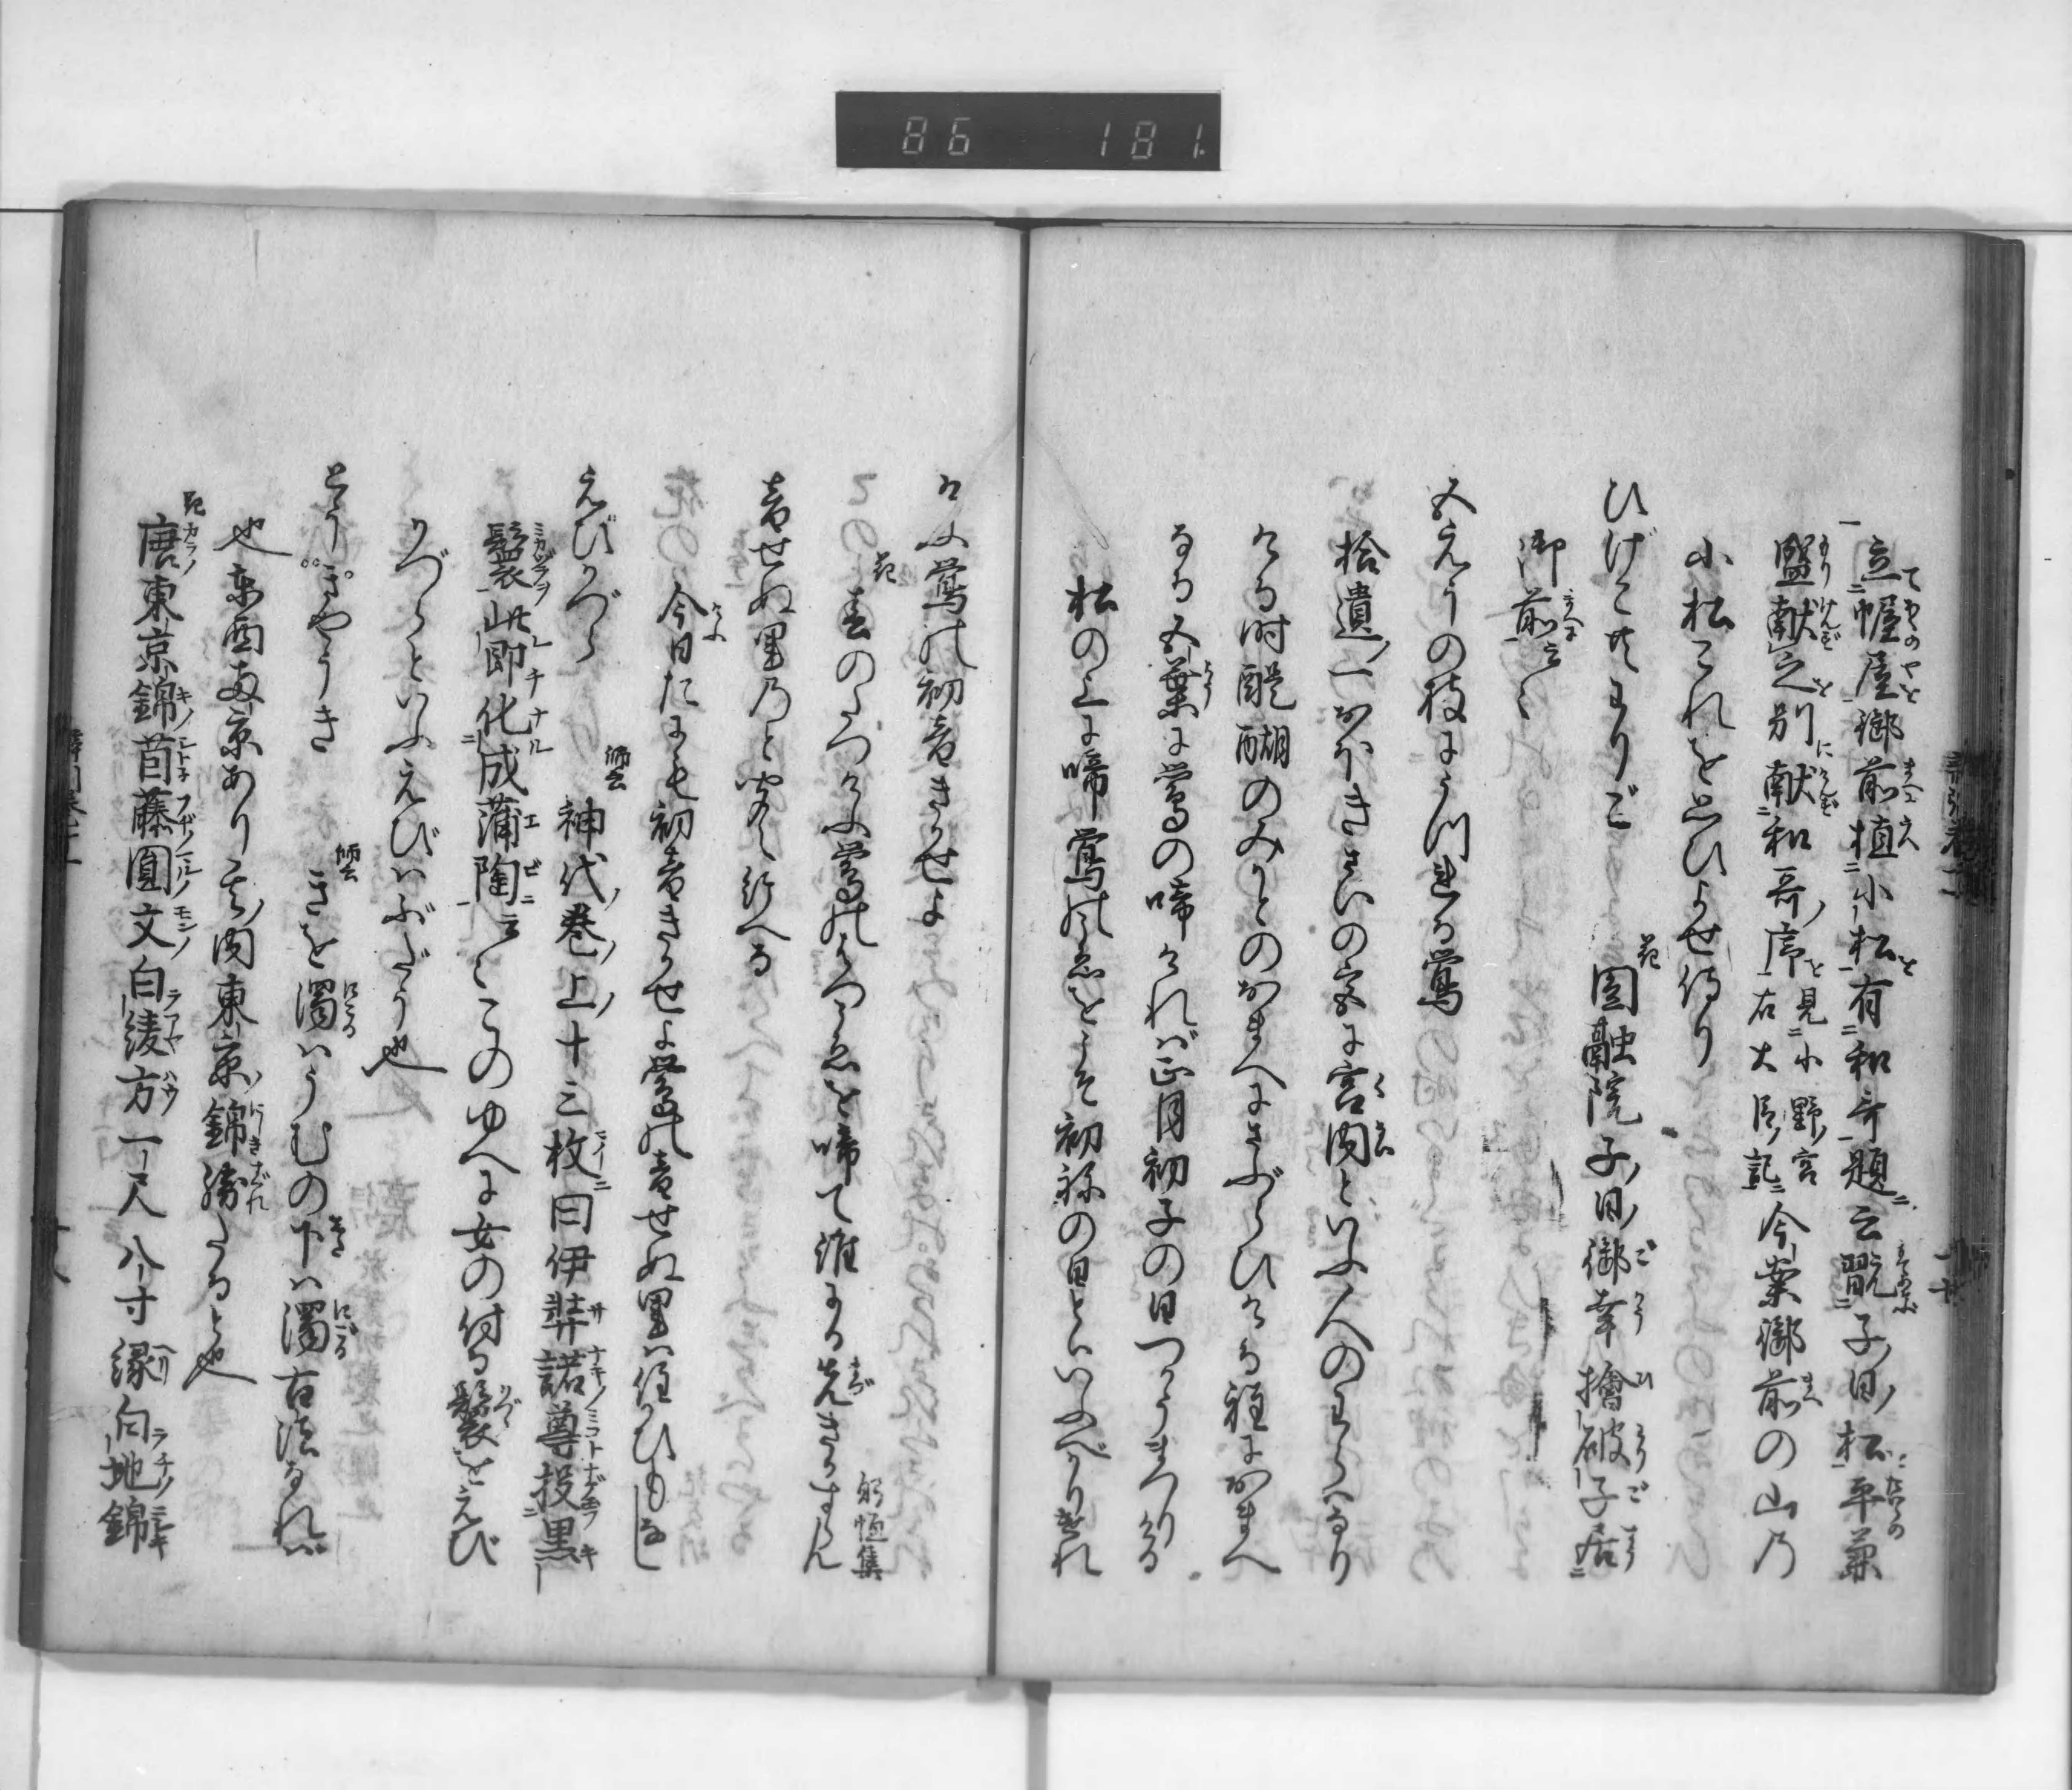 86 181
立幄屋御前植小松有和哥題云翫子日松平兼
盛献之別献和哥序見小野宮右大臣記今案御前の山乃
小松これを思ひよせ侍り
ひげこ共わりご 花 円融院子日御幸檜破子居
御前云々
五えうの枝にうつれる鶯
拾遺一おほきさいの宮に宮内といふ人のわらはなり
ける時醍醐のみかとのおまへにさぶらひける程におまへ
なる五葉に鶯の啼ければ正月初子の日つかうまつりける
松の上に啼鶯の声をこそ初ねの日とはいふべかりけれ
けふ鶯の初音きかせよ
花 春のたつけふ鶯のはつこゑを啼て誰にか先きかすらん 躬恒集
音せぬ里乃と聞え給へる
今日たにも初音きかせよ鶯の音せぬ里は住かひもなし
えびかづら 師云 神代巻上十三枚曰伊弉諾尊投黒
鬘此即化成蒲陶云々このゆへに女の付る鬘をえび
かづらといふえびはぶだう也
とうぎやうき 師云 きを濁はうむの下は濁古法なれは
也東西両京あり其内東京錦勝たると也
花 唐東京錦茵藤圓文白綾方一尺八寸縁白地錦